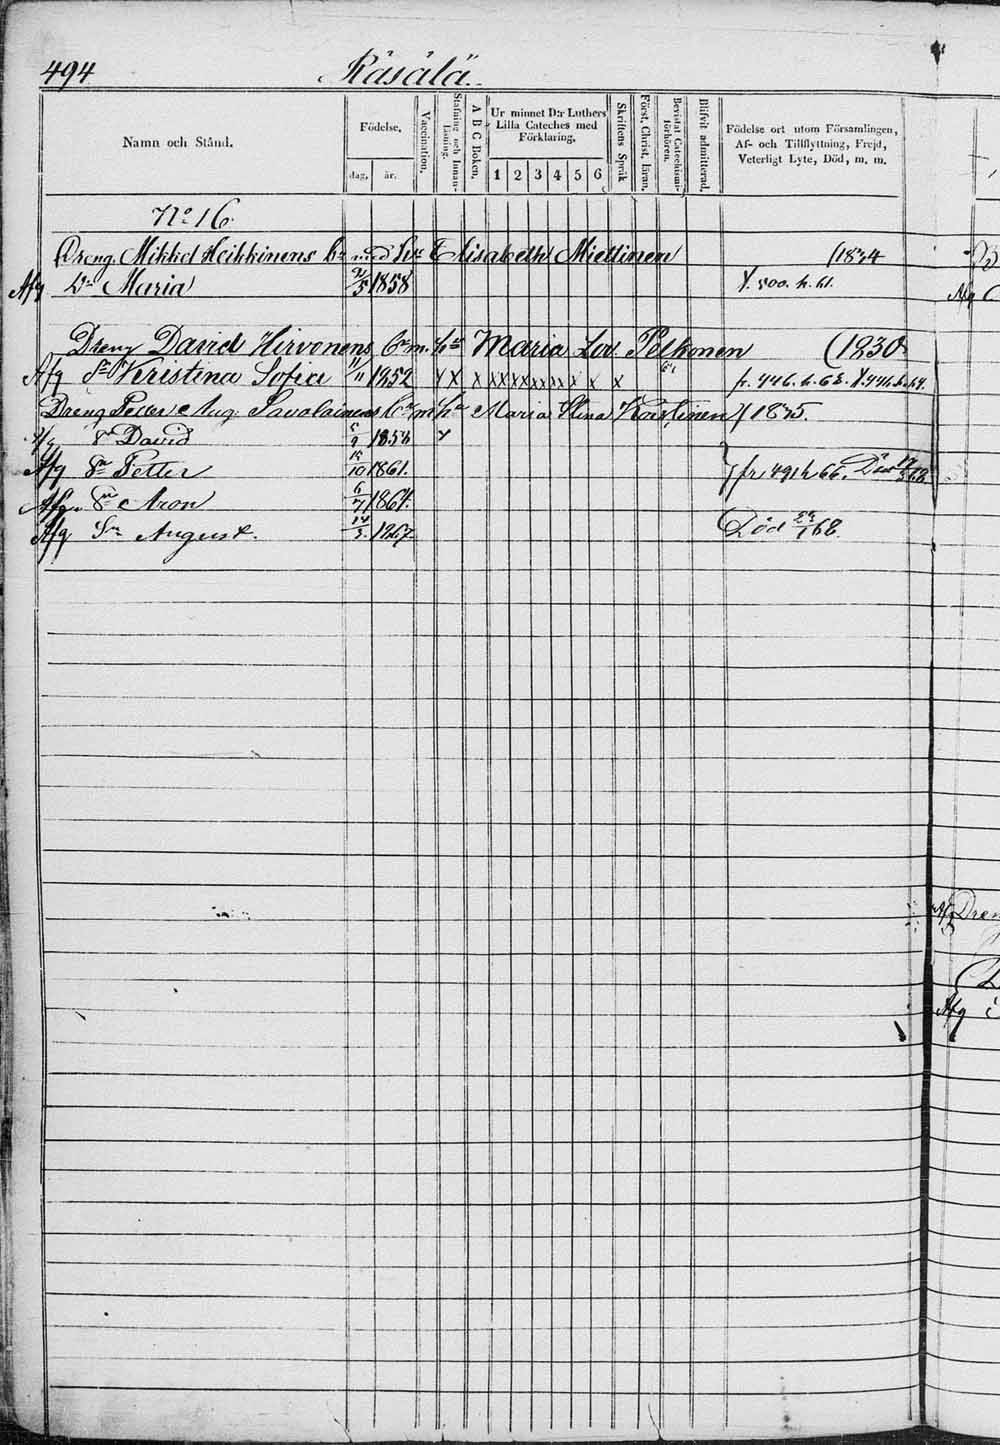 494 Räsälä.
Namn och Stånd.
Födelse,
dag, år.
Vaccination.
Stafning och Innanläsning.
A B C Boken.
Ur minnet D:r Luthers Lilla Cateches med Förklaring.
1 2 3 4 5 6
Skriftens Språk
Först. Christ. läran.
Bevistat Catechismiförhören.
Blifvit admitterad.
Födelse ort utom Församlingen,
Af- och Tillflyttning, Frejd,
Veterligt Lyte, Död, m. m.
No 16.
Dreng. Mikkel Heikkinens br med hu Elisabeth Miettinen (1834
Afg Dr Maria 2/5 1858 Y. 500. h. 61.
Dreng David Hirvonens br m. hu Maria Lov. Pelkonen (1230
Afg Dr Kristina Sofia 11/11 1252 x x x x x x x x x x x x x fr. 446. h. 63.
Dreng Petter Aug. Savolainens br m hu Maria Stina Korstinen / 1835.
Afg Sn David 5/9 1858 x
Afg Sn Petter 12/10 1861. fr 491 h 66.
Afg. Sn Aron 6/7 1864.
Afg Sn August. 14/3. 1267 Död 29/1 68.
Afg Dren
Afg